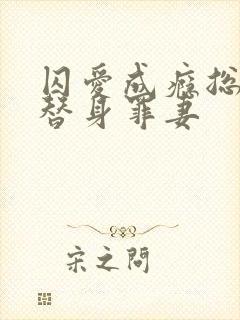 囚爱成瘾总
替身罪妻
宋之问